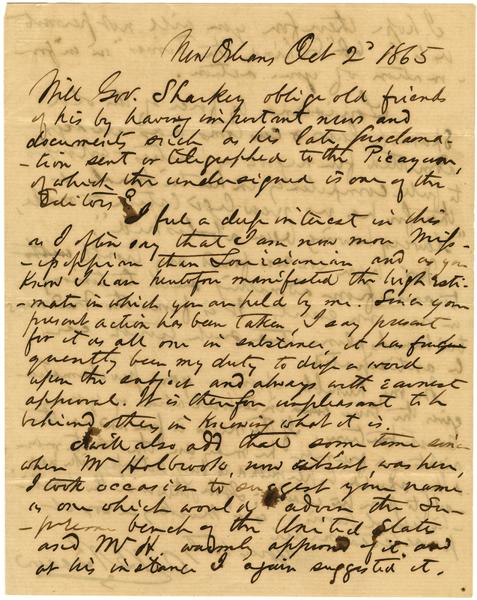 New Orleans Oct 2d 1865
Will Gov. Sharkey oblige old friends
of his by having important news and
documents such as his late proclama-
-tion sent or telegraphed to the Picayune,
of which the undersigned is one of the
Editors?
I feel a deep interest in this
as I often say that I am now more Miss-
-issippian than Louisianian and as you
know I have heretofore manifested the high esti-
-mate in which you are held by me. Since your
present action has been taken, I say present
for it is all one in substance, it has freque
quently been my duty to drop a word
upon the subject and always with earnest
approval. It is therefore unpleasant to be
behind others in knowing what it is.
I will also add that some time since
when Mr Holbrook, now absent, was here,
I took occasion to suggest your name
as one which would adorn the Su-
-preme bench of the United State
and Mr H. warmly approved of it. and
at his instance I again suggested it.